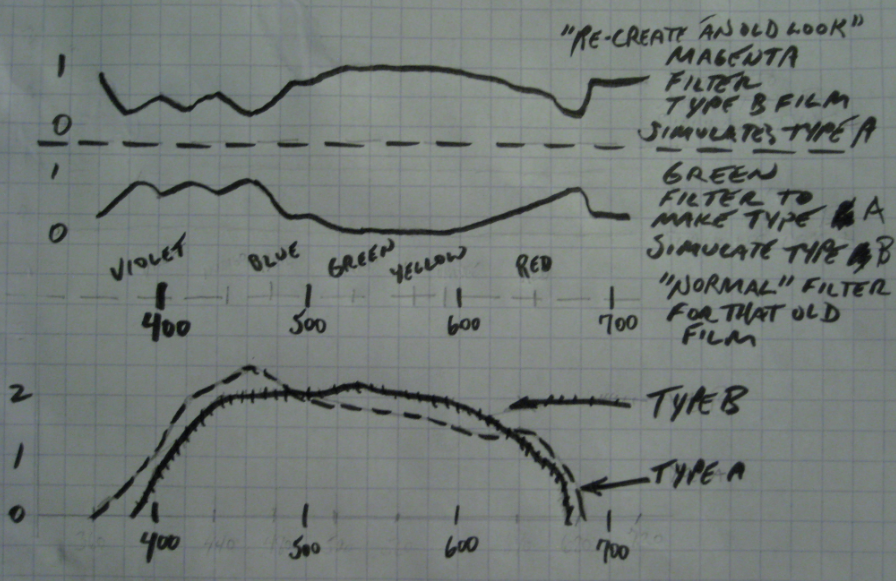 "RE-CREATE AN OLD LOOK"
MAGENTA
FILTER
TYPE B FILM
SIMULATES TYPE A
1
0
GREEN
FILTER TO
MAKE TYPE A
SIMULATE TYPE B
"NORMAL" FILTER
FOR THAT OLD
FILM
1
0
VIOLET BLUE GREEN YELLOW RED
400 500 600 700
2
1
0
TYPE B
TYPE A
400 500 600 700